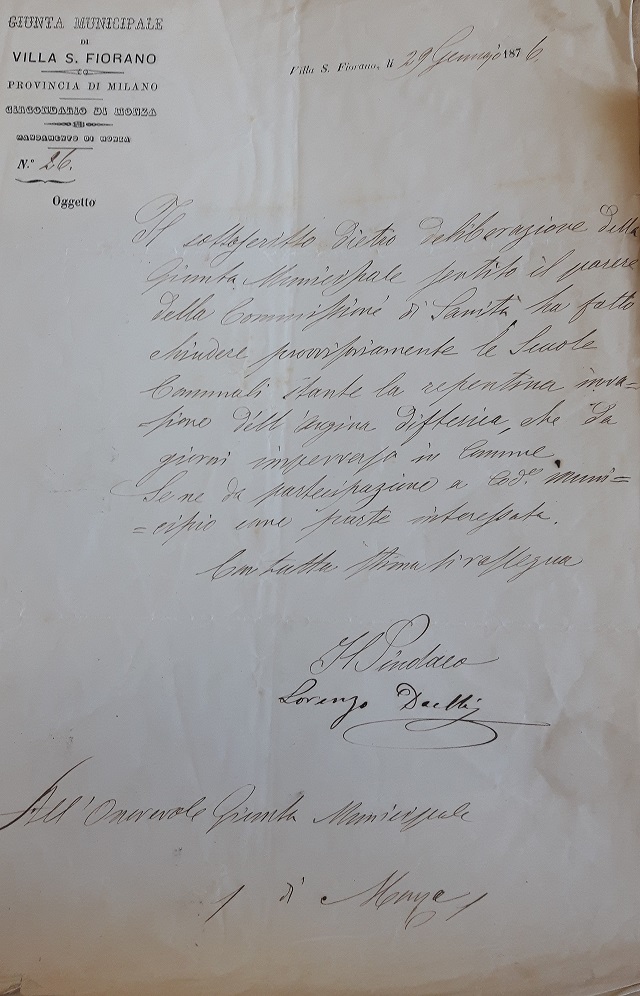 GIUNTA MUNICIPALE
DI
VILLA S. FIORANO
PROVINCIA DI MILANO
CIRCONDARIO DI MONZA
MANDAMENTO DI MONZA
N.º 26.
Oggetto
Villa S. Fiorano, li 29 Gennajo 1876.
Il sottoscritto dietro deliberazione della
Giunta Municipale sentito il parere
della Commissione di Sanità ha fatto
chiudere provvisoriamente le Scuole
Comunali stante la repentina inva=
sione dell'Angina difterica, che da
giorni imperversa in Comune
Se ne da partecipazione a Cod.º Muni=
=cipio come parte interessata.
Con tutta stima si rassegna
Il Sindaco
Lorenzo Daelli
All'Onorevole Giunta Municipale
di Monza